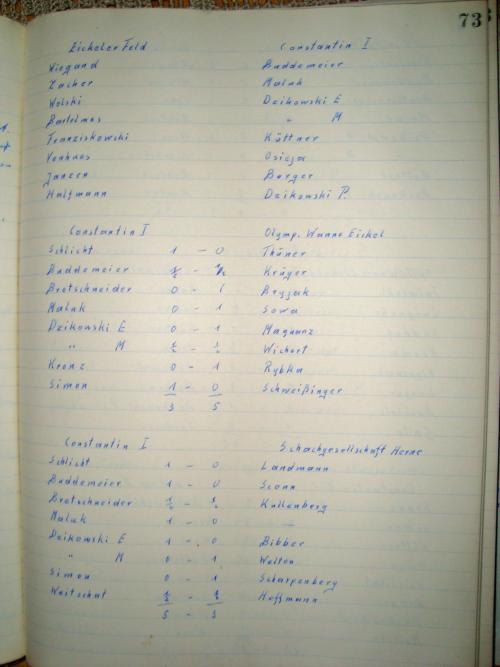 73
Eickeler Feld Constantin I
Wiegand Buddemeier
Zacher Maluk
Wolski Dzikowski E
Bartelmes " M
Franziskowski Küttner
Venhaus Osieja
Janzen Berger
Halfmann Dzikowski P.
Constantin I Olymp. Wanne Eickel
Schlicht 1 - 0 Thüner
Buddemeier ½ - ½ Krüger
Bretschneider 0 - 1 Bryjak
Maluk 0 - 1 Sowa
Dzikowski E 0 - 1 Maquanz
" M ½ - ½ Wichert
Krenz 0 - 1 Rybka
Simon 1 - 0 Schweißinger
3 5
Constantin I Schachgesellschaft Herne
Schlicht 1 - 0 Landmann
Buddemeier 1 - 0 Sconn
Bretschneider ½ - ½ Kullenberg
Maluk 1 - 0 —
Dzikowski E 1 - 0 Bibber
" M 0 - 1 Welten
Simon 0 - 1 Scharpenberg
Weitschat ½ - ½ Hoffmann
5 - 3